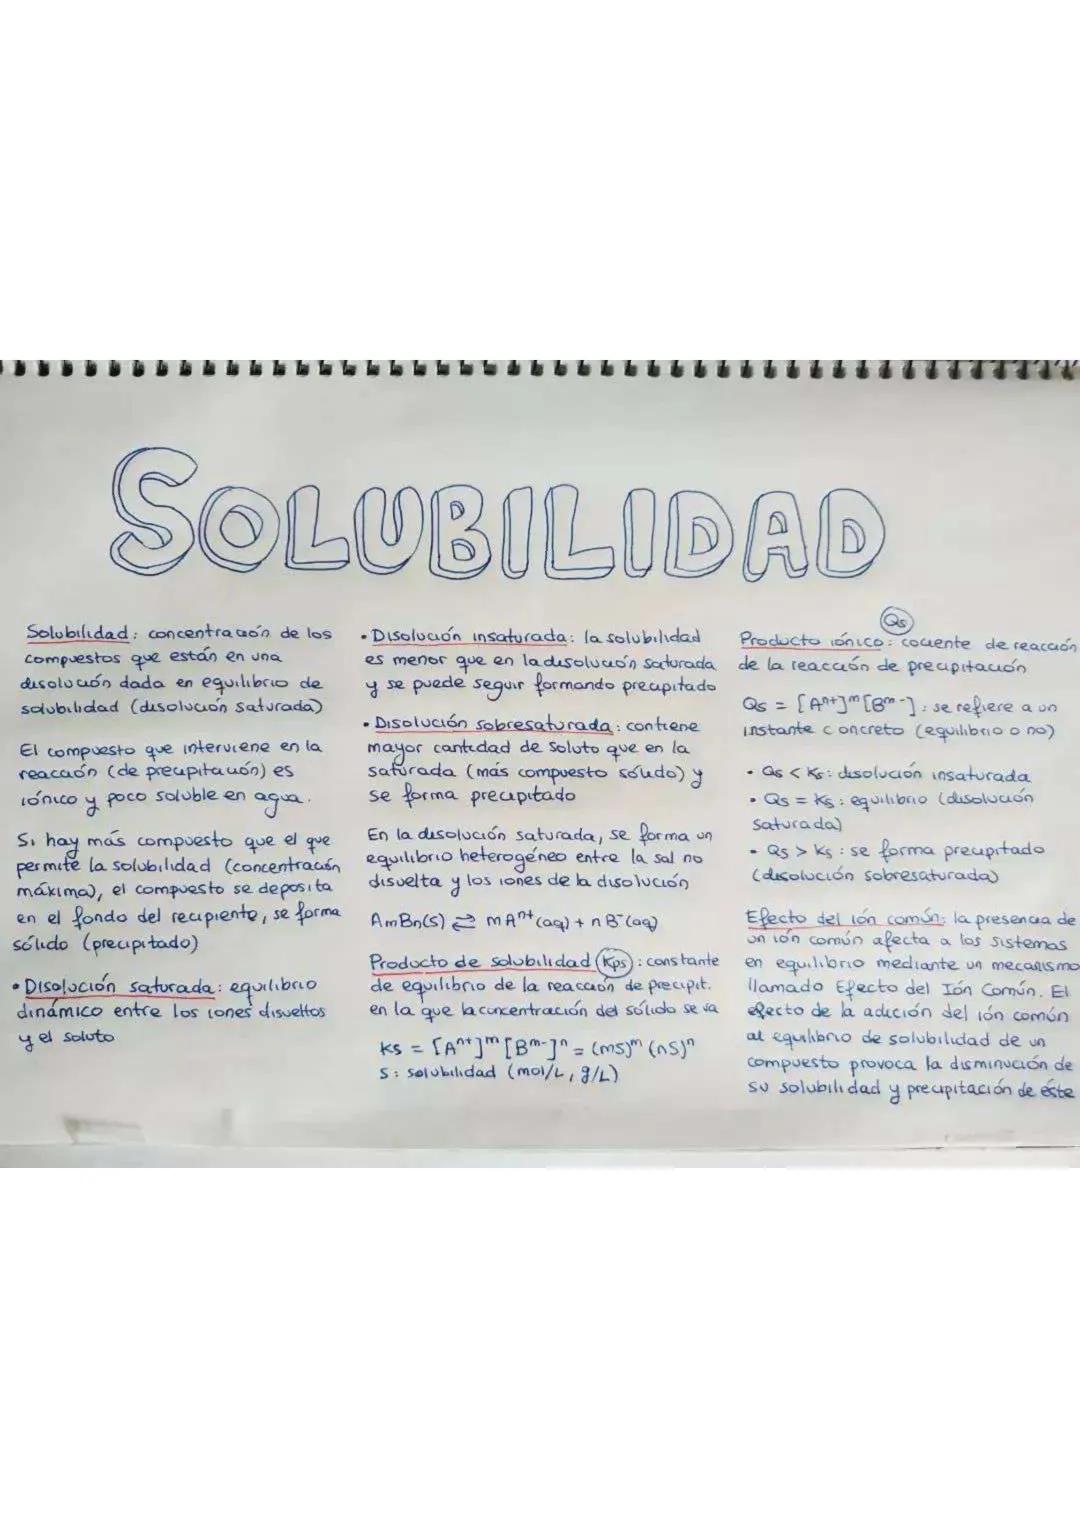 SOLUBILIDAD
Solubilidad: concentración de los
compuestos que están en una
disolución dada en equilibrio de
solubilidad (disolución saturada)
El compuesto que interviene en la
reacción (de precipitación) es
iónico y poco soluble en agua.
Si hay más compuesto que el que
permite la solubilidad (concentración
máxima), el compuesto se deposita
en el fondo del recipiente, se forma
sólido (precipitado)
• Disolución saturada: equilibrio
dinámico entre los iones disueltos
y el soluto
• Disolución insaturada: la solubilidad
es menor que en la disolución saturada
y se puede seguir formando precipitado
• Disolución sobresaturada: contiene
mayor cantidad de soluto que en la
saturada (más compuesto sóludo) y
se forma precipitado
En la disolución saturada, se forma un
equilibrio heterogéneo entre la sal no
disuelta y los iones de la disolución
AmBn(s) ⇄ mAⁿ⁺(aq) + nB⁻(aq)
Producto de solubilidad (Kps): constante
de equilibrio de la reacción de precipit.
en la que la concentración del sólido se va
Ks = [Aⁿ⁺]ᵐ [Bᵐ⁻]ⁿ = (mS)ᵐ (nS)ⁿ
S: solubilidad (mol/L, g/L)
Qs
Producto iónico: cociente de reacción
de la reacción de precipitación
Qs = [Aⁿ⁺]ᵐ[Bᵐ⁻]: se refiere a un
instante concreto (equilibrio o no)
• Qs < Ks: disolución insaturada
• Qs = Ks: equilibrio (disolución
saturada)
• Qs > Ks: se forma precipitado
(disolución sobresaturada)
Efecto del ión común: la presencia de
un ión común afecta a los sistemas
en equilibrio mediante un mecanismo
llamado Efecto del Ión Común. El
efecto de la adición del ión común
al equilibrio de solubilidad de un
compuesto provoca la disminución de
su solubilidad y precipitación de éste